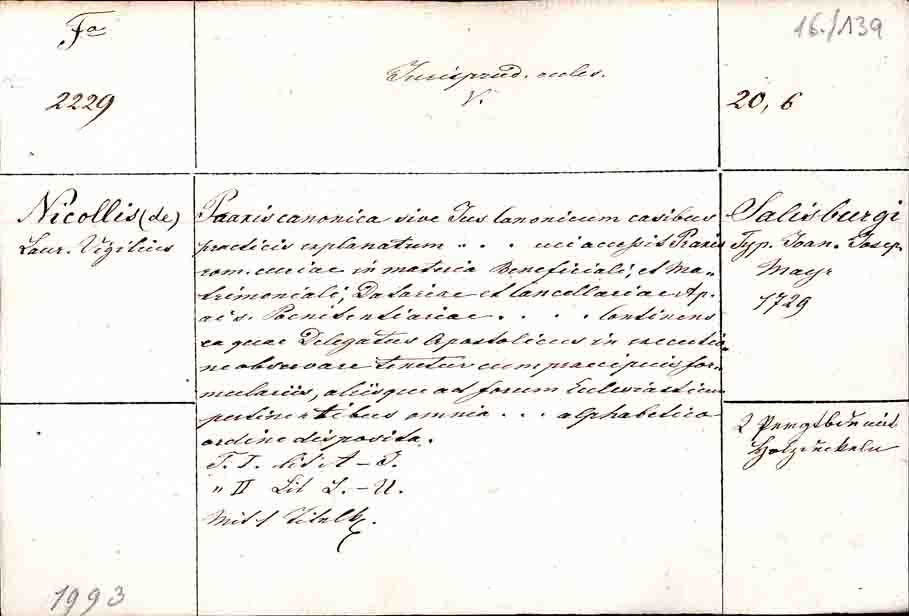 Fa
2229
Jurisprud. eccles.
V.
16./139
20, 6
Nicollis (de)
Laur. Vigilius
Praxis canonica sive Jus Canonicum casibus
practicis explanatum . . . cui accessit Praxis
rom. curiae in materia Beneficiali, et Ma-
trimoniali, Datariae et Cancellariae Ap.
ac s. Poenitentiariae . . . . Continens
ea quae Delegatus Apostolicus in executio-
ne observare tenetur cum praecipuis for-
mulariis, aliisque ad forum Ecclesiasticum
pertinentibus omnia . . . alphabetico
ordine disposita.
T. I. lit A - I.
„ II Lit L. - U.
Mit 1 Titelk.
Salisburgi
Typ. Joan. Josep.
Mayr
1729
2 Pergtbde mit
Holzdeckeln
1993